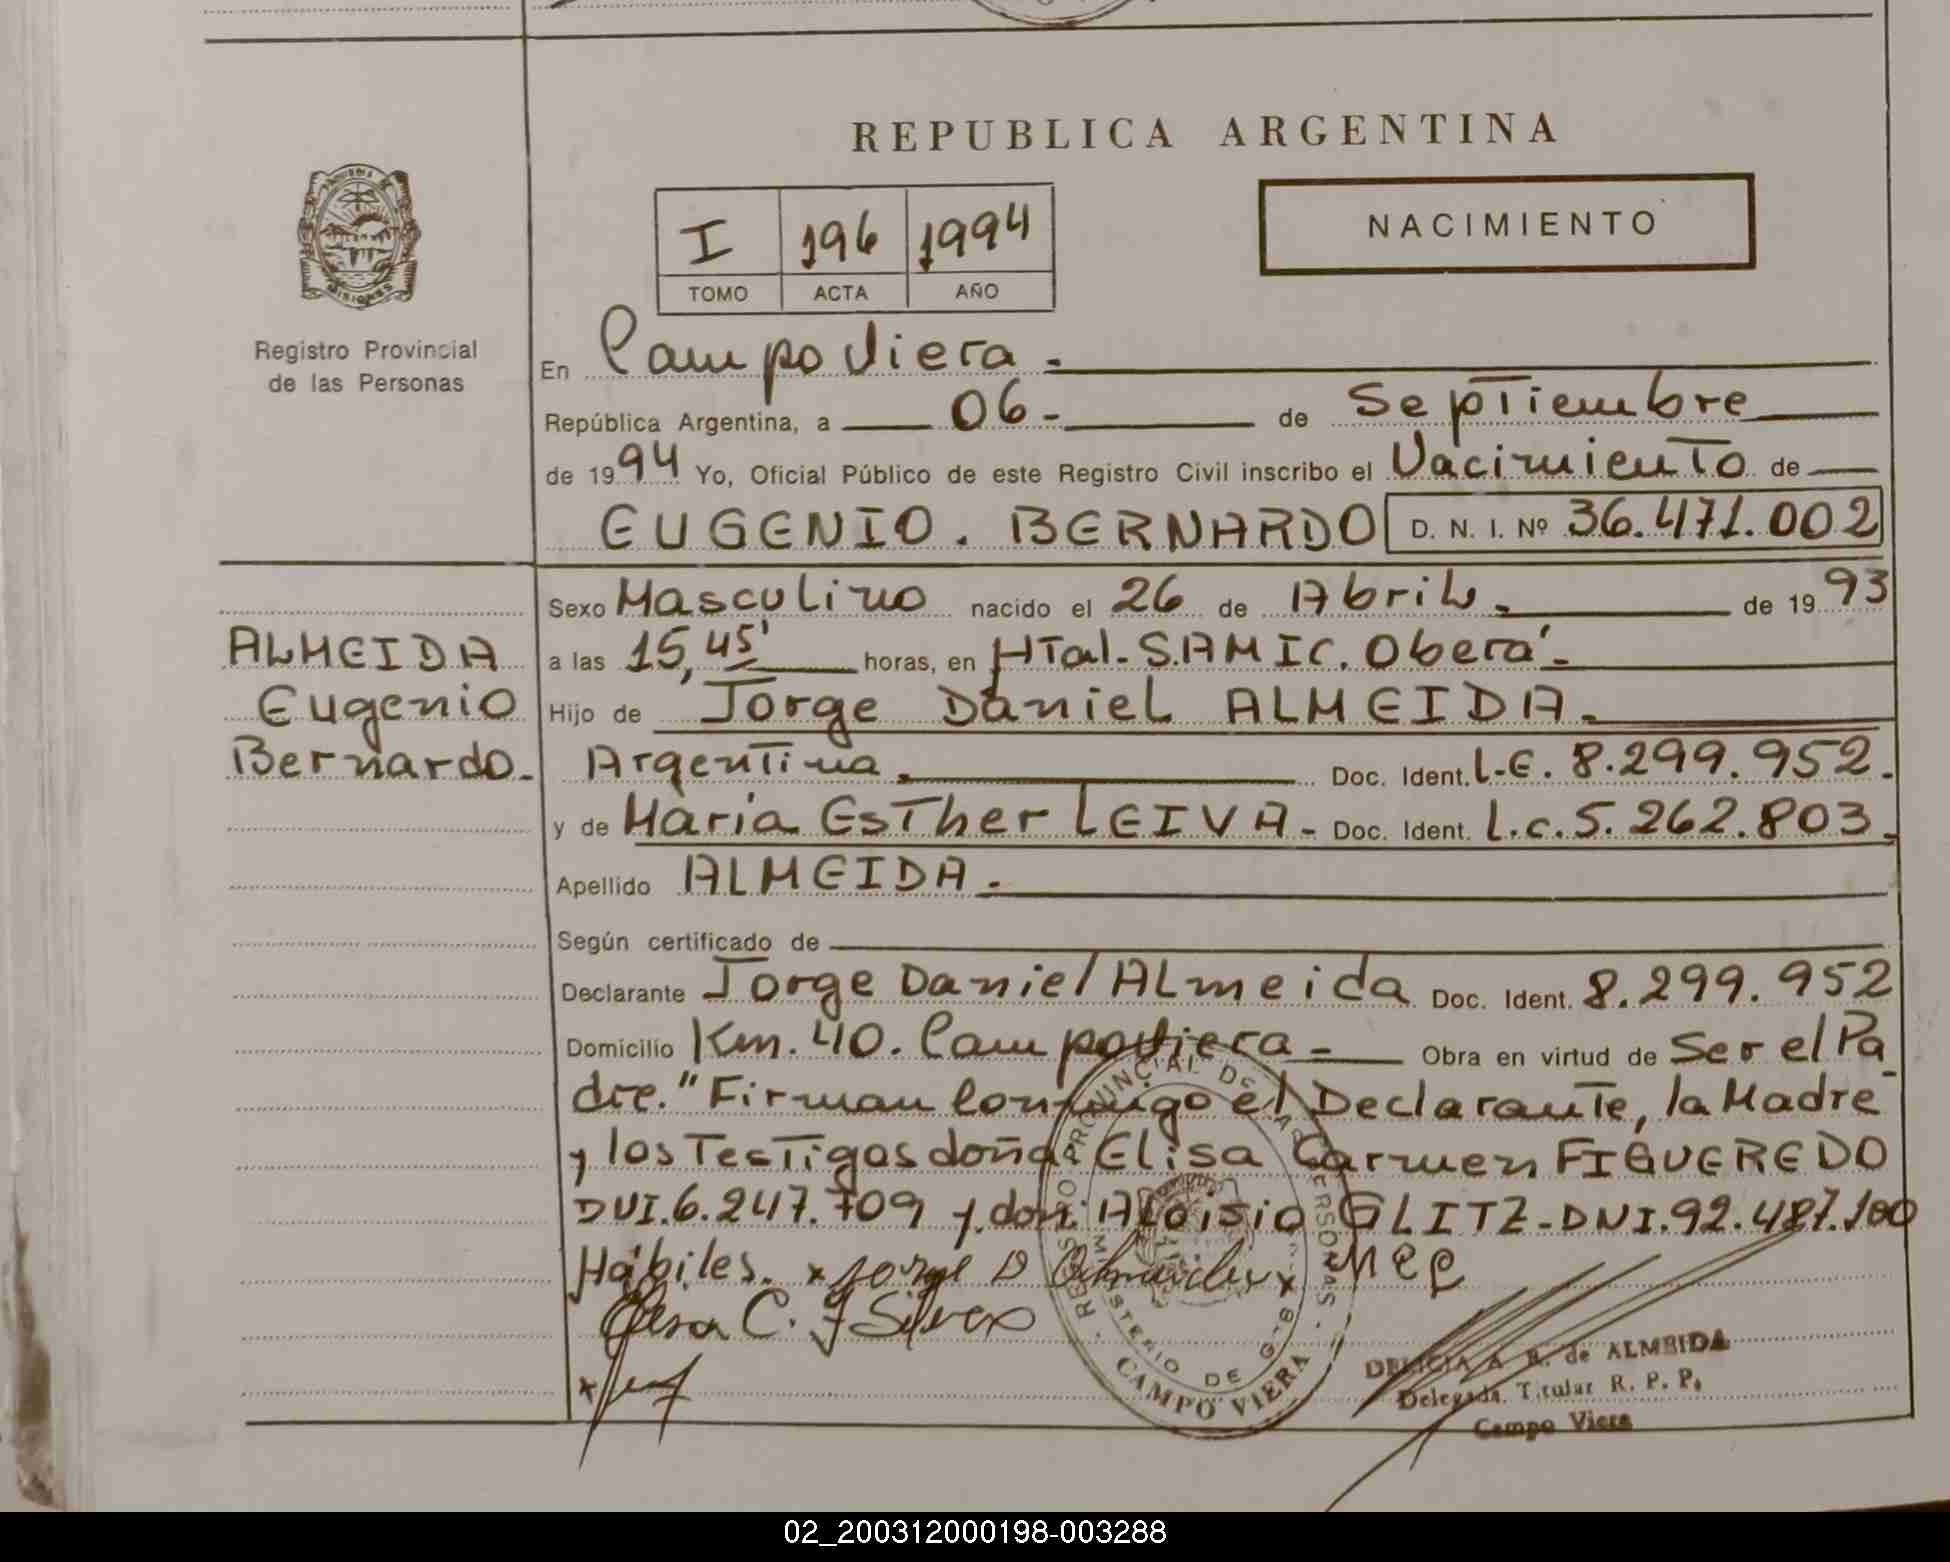 REPUBLICA ARGENTINA
NACIMIENTO
I 196 1994
TOMO ACTA AÑO
MISIONES
Registro Provincial
de las Personas
En Campo Viera.-
República Argentina, a 06- de Septiembre
de 1994 Yo, Oficial Público de este Registro Civil inscribo el Nacimiento de
EUGENIO. BERNARDO D. N. I. Nº 36.471.002
Sexo Masculino nacido el 26 de Abril.- de 1993
ALMEIDA
Eugenio
Bernardo.-
a las 15,45' horas, en HTal. S.AMIC. Oberá.-
Hijo de Jorge Daniel ALMEIDA.-
Argentina.- Doc. Ident. L.E. 8.299.952.-
y de María Esther LEIVA.- Doc. Ident. L.c. 5.262.803.-
Apellido ALMEIDA.-
Según certificado de
Declarante Jorge Daniel Almeida Doc. Ident. 8.299.952
Domicilio Km. 40. Campo Viera.- Obra en virtud de Ser el Pa-
dre." Firman Conmigo el Declarante, la Madre
y los Testigos doña Elisa Carmen FIGUEREDO
DNI.6.247.709 y don Aloisio GLITZ-DNI.92.487.100
Hábiles. x Jorge D x MEL
x
REGISTRO PROVINCIAL DE LAS PERSONAS
MINISTERIO DE
CAMPO VIERA
DELICIA A. R. de ALMEIDA
Delegada Titular R. P. P.
Campo Viera
02_200312000198-003288